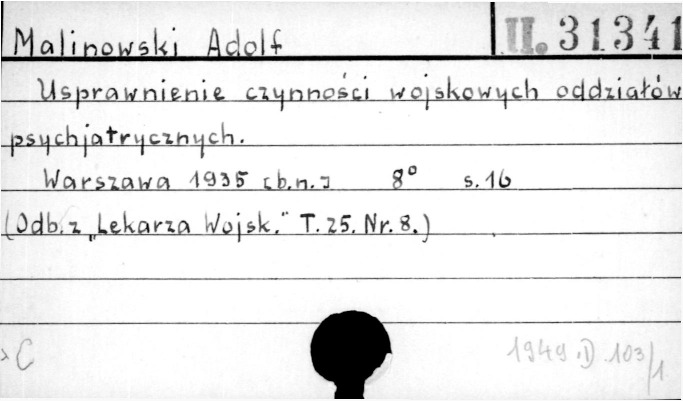 Malinowski Adolf II. 31341
Usprawnienie czynności wojskowych oddziałów
psychjatrycznych.
Warszawa 1935 [b.n.] 8° s. 16
(Odb. z „Lekarza Wojsk." T. 25. Nr. 8.)
C 1949.D.103/1